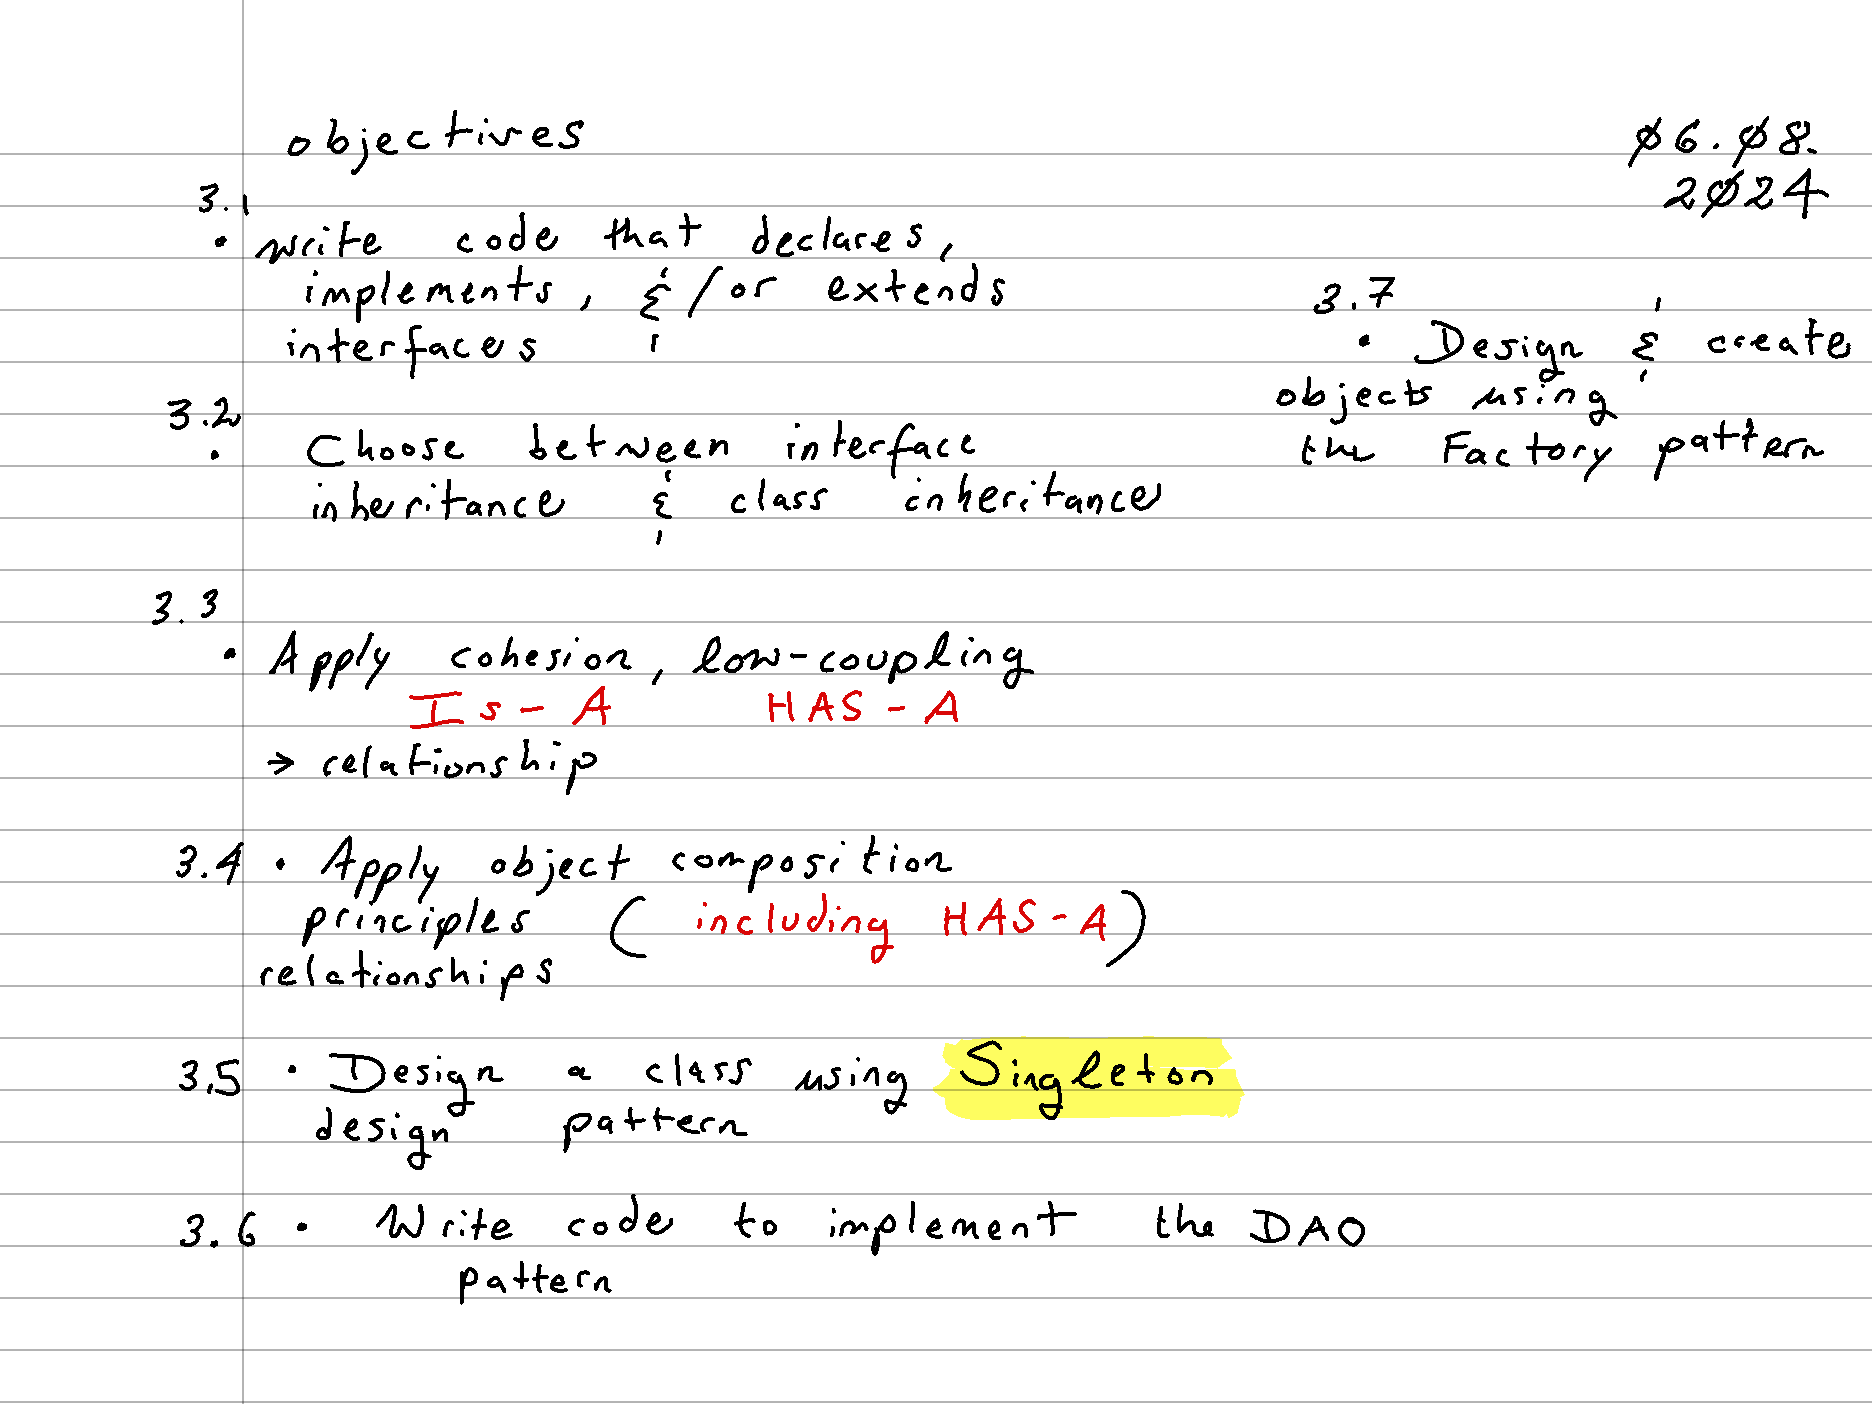 objectives
06.08.
2024
3.1
• write code that declares,
implements, & / or extends
interfaces
3.2
• Choose between interface
inheritance & class inheritance
3.3
• Apply cohesion, low-coupling
Is-A HAS-A
→ relationship
3.4 • Apply object composition
principles (including HAS-A)
relationships
3.5 • Design a class using Singleton
design pattern
3.6 • Write code to implement the DAO
pattern
3.7
• Design & create
objects using
the Factory pattern